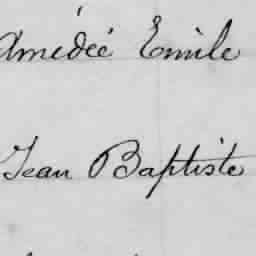 Amédéé Emile
Jean Baptiste